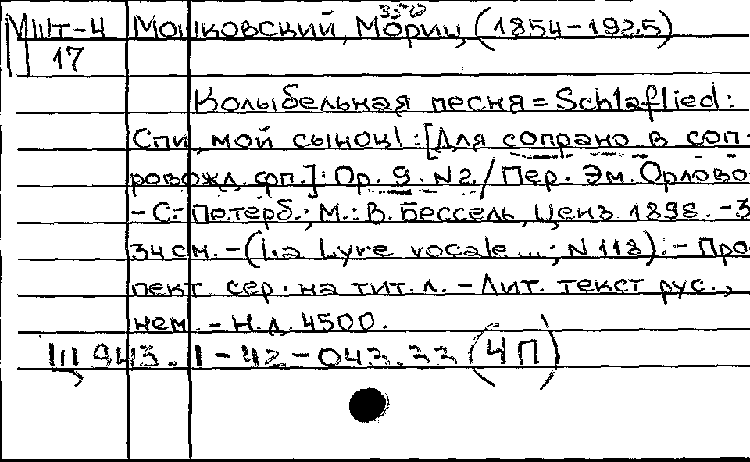 Мшт-4 Мошковский, Мориц, (1854-1925)
17
Колыбельная песня = Schlaflied:
Спи, мой сынок! : [Для сопрано в соп-
ровожд. фп.]: Op. 9. N2. / Пер. Эм. Орлово
- С.-Петерб.; М.: В. Бессель, Ценз. 1898. - 3
34 см. - (La Lyre vocale ...; N 118). - Про
пект. сер. на тит. л. - Лит. текст рус.,
нем. - Н.д. 4500.
943. 1-42-043.33 (4П)